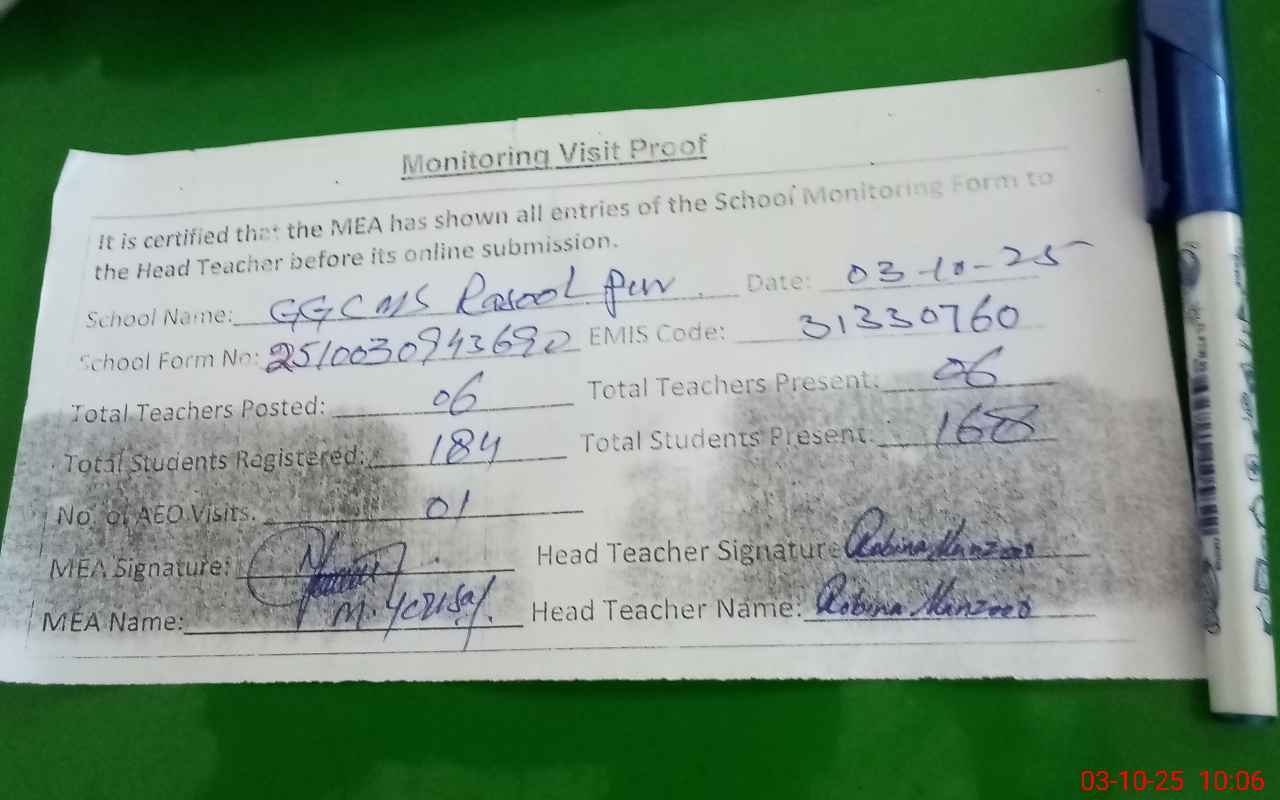 Monitoring Visit Proof
It is certified that the MEA has shown all entries of the School Monitoring Form to
the Head Teacher before its online submission.
School Name: GGCMS Rasool Pur. Date: 03-10-25
School Form No: 2510030943692 EMIS Code: 31330760
Total Teachers Posted: 06 Total Teachers Present: 06
Total Students Registered: 184 Total Students Present: 168
No. of AEO Visits. 01
MEA Signature: Head Teacher Signature Robina Manzoor
MEA Name: M. Head Teacher Name: Robina Manzoor
03-10-25 10:06